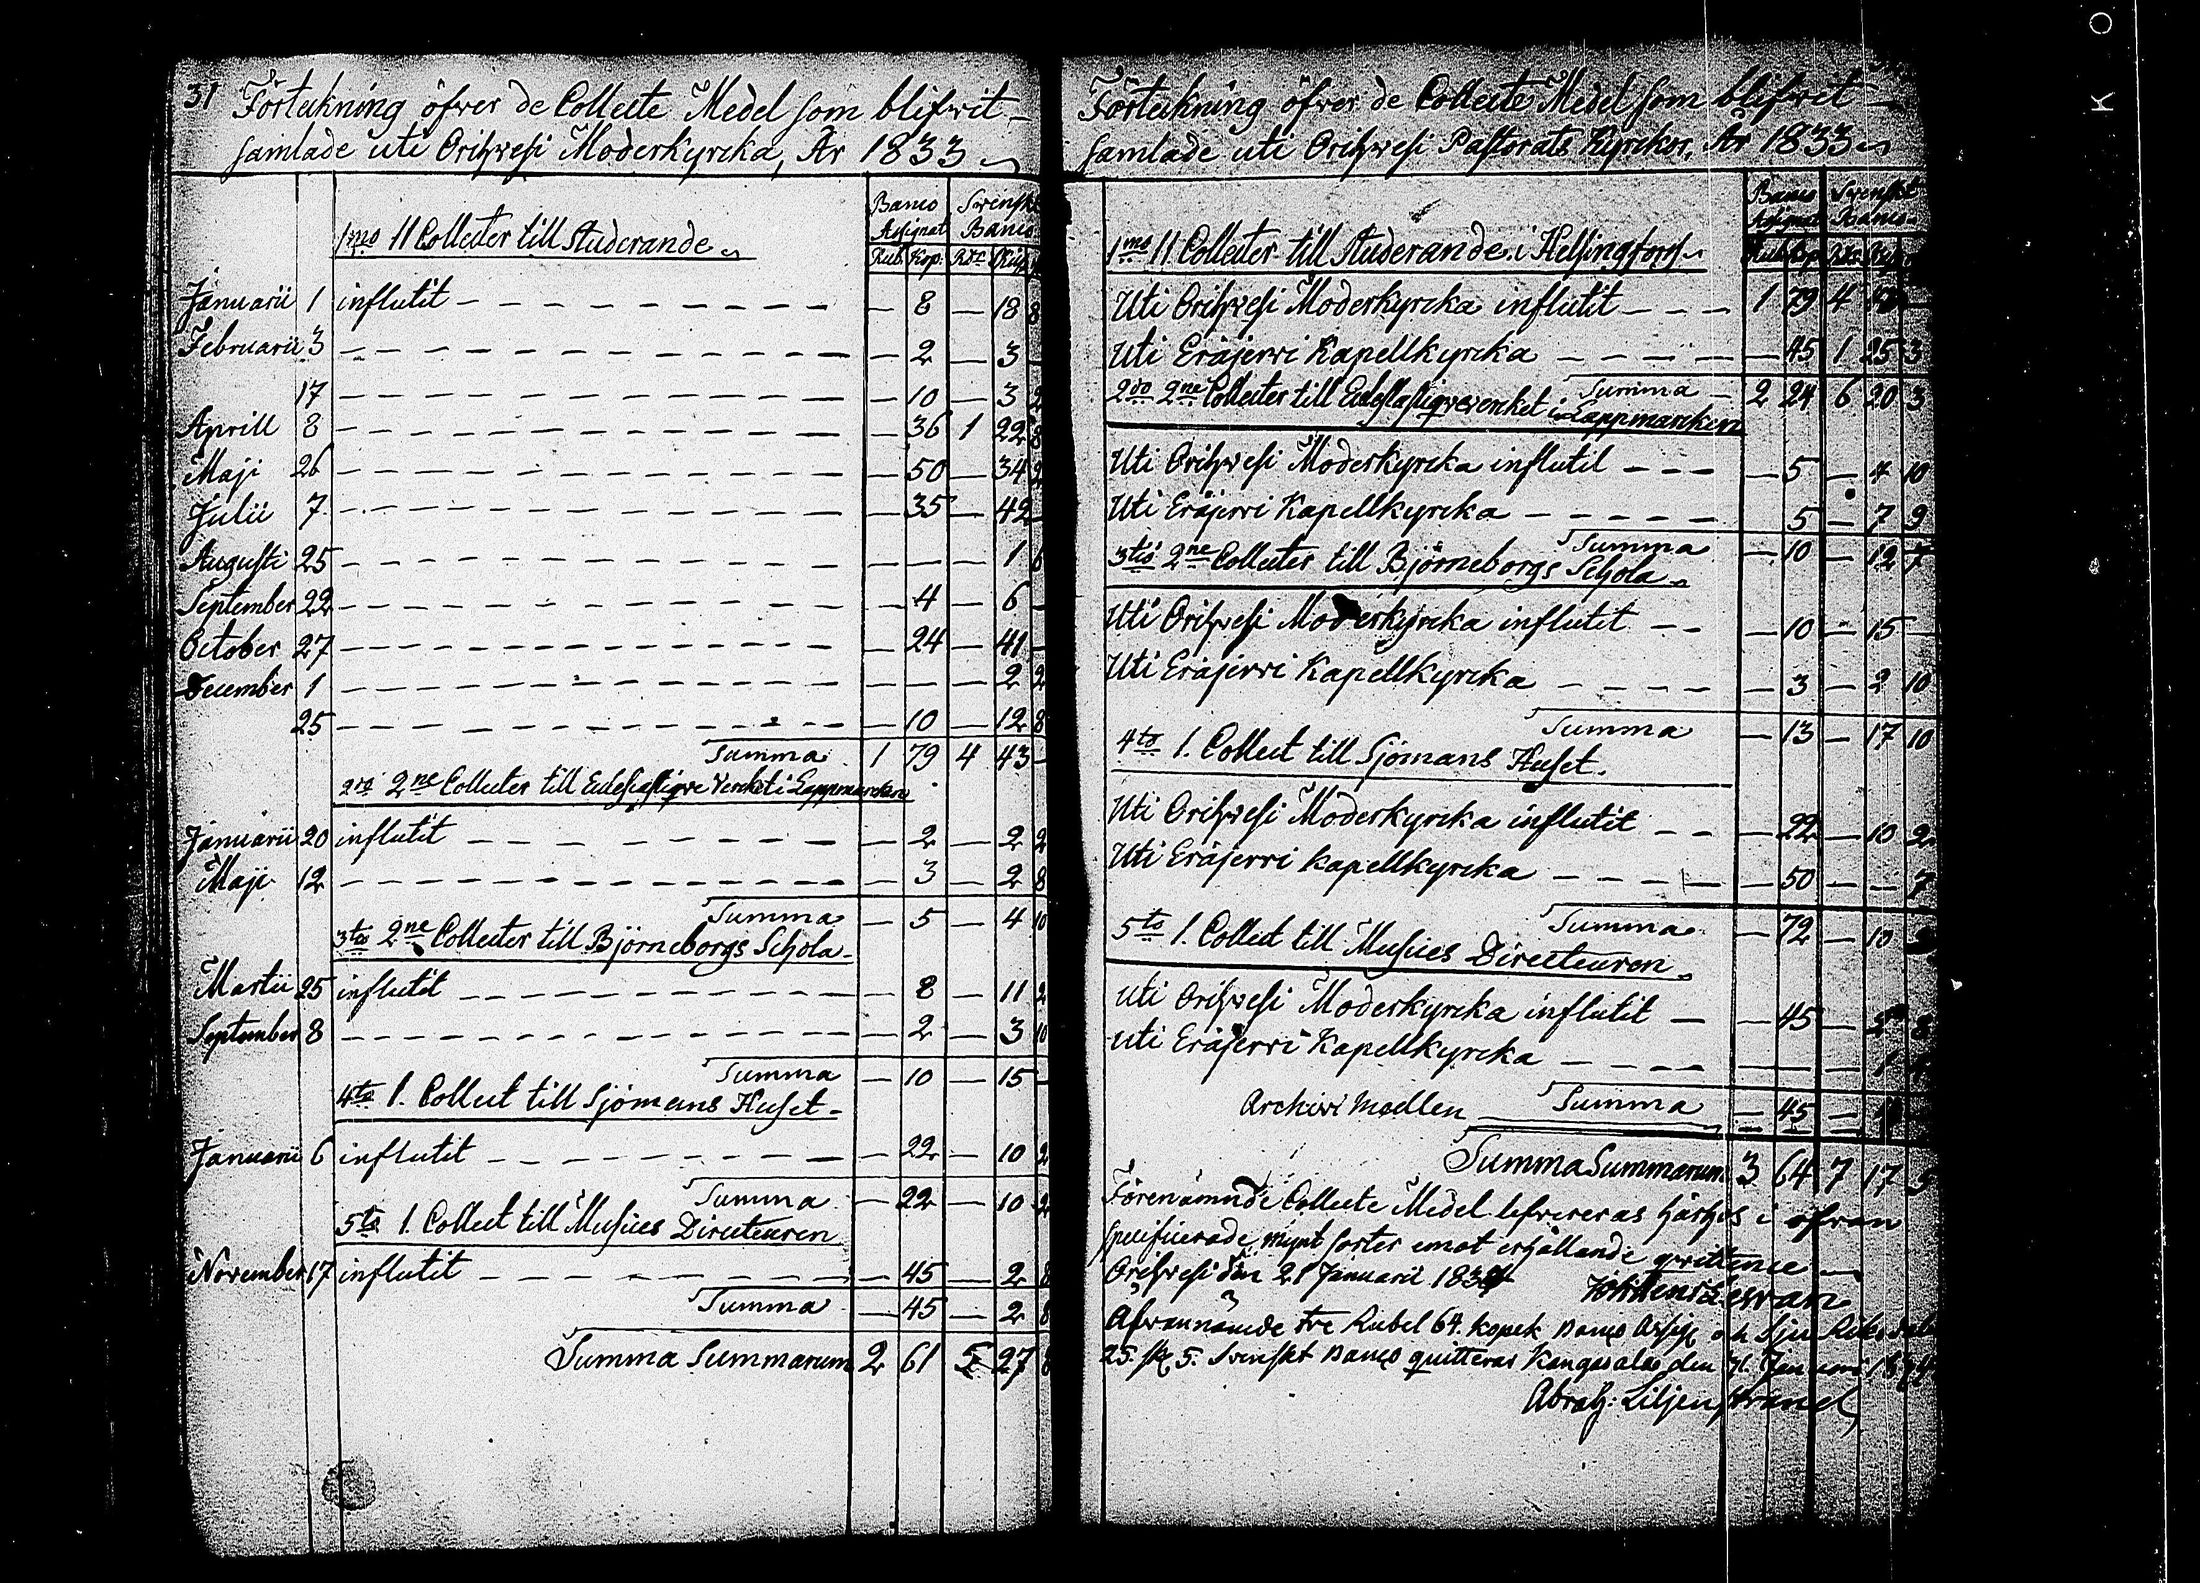 31 Förteckning öfver de Collecte Medel som blifwit
samlade uti Orihwesi Moderkyrcka, År 1833
Banco Swenskt
Assignat. Banco.
1mo 11 Collecter till Studerande
Rub. Kop: Rdr
Januarii 1 influtit — 8 — 18 8
Februarii 3 — 2 — 3 —
17 — 10 — 3 2
Aprill 8 — 36 1 22 8
Maji 26 — 50 — 34 2
Julii 7 — 35 — 42 —
Augusti 25 — — — 1 6
September 22 — 4 — 6 —
October 27 — 24 — 41 —
December 1 — — — 2 2
25 — 10 — 12 8
Summa 1 79 4 43 —
2do 2ne Collecter till Ecclesiastiqve Vercket i Lappmarcken
Januarii 20 influtit — 2 — 2 2
Maji 12 — 3 — 2 8
Summa — 5 — 4 10
3tio 2ne Collecter till Björneborgs Schola
Martii 25 influtit — 8 — 11 2
September 8 — 2 — 3 10
Summa — 10 — 15 —
4to 1. Collect till Sjömans Huset
Januarii 6 influtit — 22 — 10 2
Summa — 22 — 10 2
5to 1. Collect till Musices Directeuren
November 17 influtit — 45 — 2 8
Summa — 45 — 2 8
Summa Summarum 2 61 5 27 8
Förteckning öfver de Collecte Medel som blifwit
samlade uti Orihwesi Pastorats Kyrckor, År 1833
Banco Swenskt
Assignat. Banco.
1mo 11 Collecter till Studerande i Helsingfors
Uti Orihwesi Moderkyrcka influtit — 1 79 4
Uti Eräjerwi Kapellkyrcka — 45 1 25 3
Summa — 2 24 6 20 3
2do 2ne Collecter till Ecclesiastiqvevercket i Lappmarcken
Uti Orihwesi Moderkyrcka influtit — 5 — 4 10
Uti Eräjerwi Kapellkyrcka — 5 — 7 9
Summa — 10 — 12 7
3tio 2ne Collecter till Björneborgs Schola
Uti Orihwesi Moderkyrcka influtit — 10 — 15 —
Uti Eräjerwi Kapellkyrcka — 3 — 2 10
Summa — 13 — 17 10
4to 1. Collect till Sjömans Huset.
Uti Orihwesi Moderkyrcka influtit — 22 — 10 2
Uti Eräjerwi Kapellkyrcka — 50 — — 7
Summa — 72 — 10 9
5to 1. Collect till Musices Directeuren
Uti Orihwesi Moderkyrcka influtit — 45 — 2 8
Uti Eräjerwi Kapellkyrcka — — — 1
Archivi Medlen Summa — 45 —
Summa Summarum 3 64 7 17 5
Förenämnde Collecte Medel lefwereras härhos i ofwan
specificerade mynt sorter emot erhållande qvittence
Orihwesi den 21 Januarii 1834
Ofwannämde tre Rubel 64. kopek Banco Assig: och Sju Riksdal
25. sk 5. Svenskt Banco quitteras Kangasala den 31. Januari 1834
Abrah: Liljenstrand
O
K